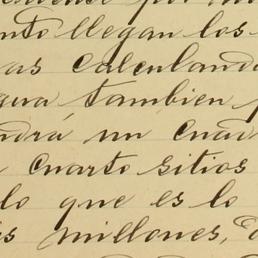 por
ento llegan los
as calculando
gua tambien
ndrá un cuad
cuarto sitios
lo que es lo
is millones,